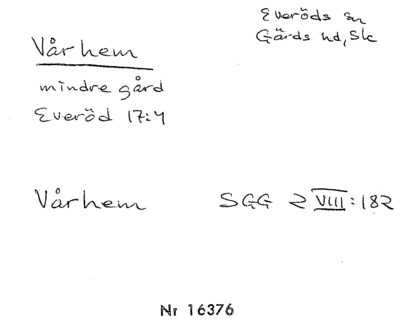 Everöds sn
Gärds hd, Skc
Vårhem
mindre gård
Everöd 17:4
Vårhem SGG 2 VIII:182
Nr 16376